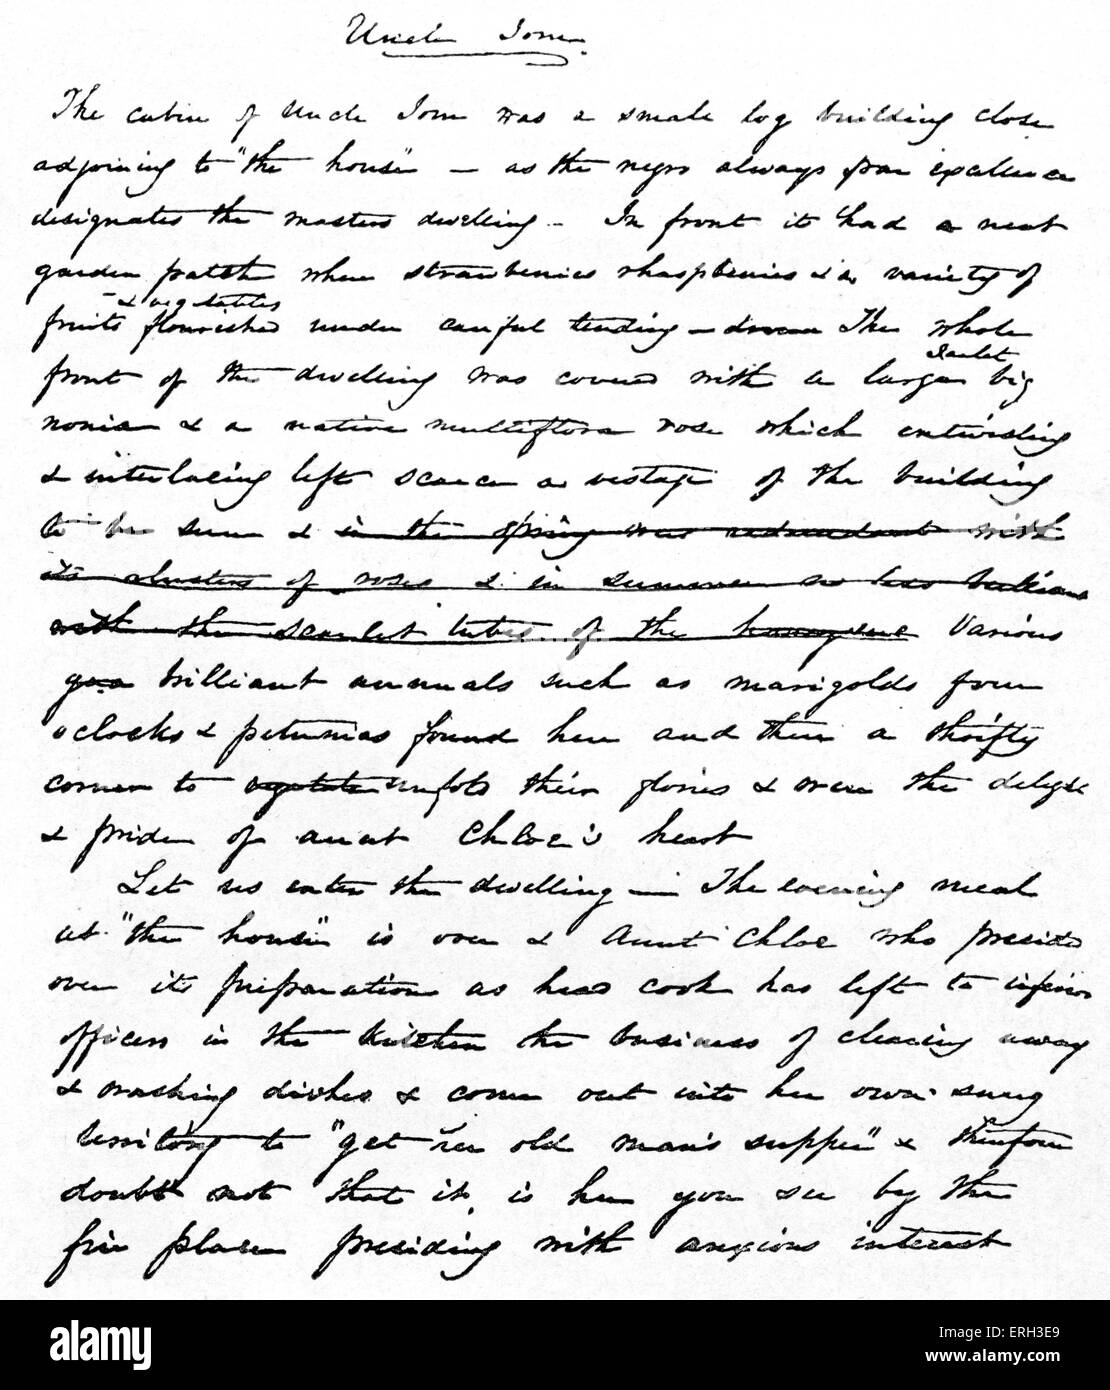 Uncle Tom
The cabin of Uncle Tom was a small log building close
adjoining to "the house" – as the negro always par excellence
designates the masters dwelling – In front it had a neat
garden patch where strawberries rhaspberries & a variety of
& vegetables
fruits flourished under careful tending – The whole
scarlet
front of the dwelling was covered with a large big
nonia & a native multiflora rose which entwisting
& interlacing left scarce a vestage of the building
to be seen & in the spring was redundant with
its clusters of roses & in summer no less brilliant
with the scarlet tubes of the Various
brilliant annuals such as marigolds four
oclocks & petunias found here and there a thrifty
corner to vegetate unfold their glories & were the delight
& pride of aunt Chloe's heart
Let us enter the dwelling – The evening meal
at "the house" is over & Aunt Chloe who presided
over its preparation as head cook has left to inferior
officers in the kitchen the business of clearing away
& washing dishes & come out into her own snug
territory to "get her old man's supper" & therefore
doubt not that it is her you see by the
fire place presiding with anxious interest
alamy
alamy stock photo
ERH3E9
www.alamy.com